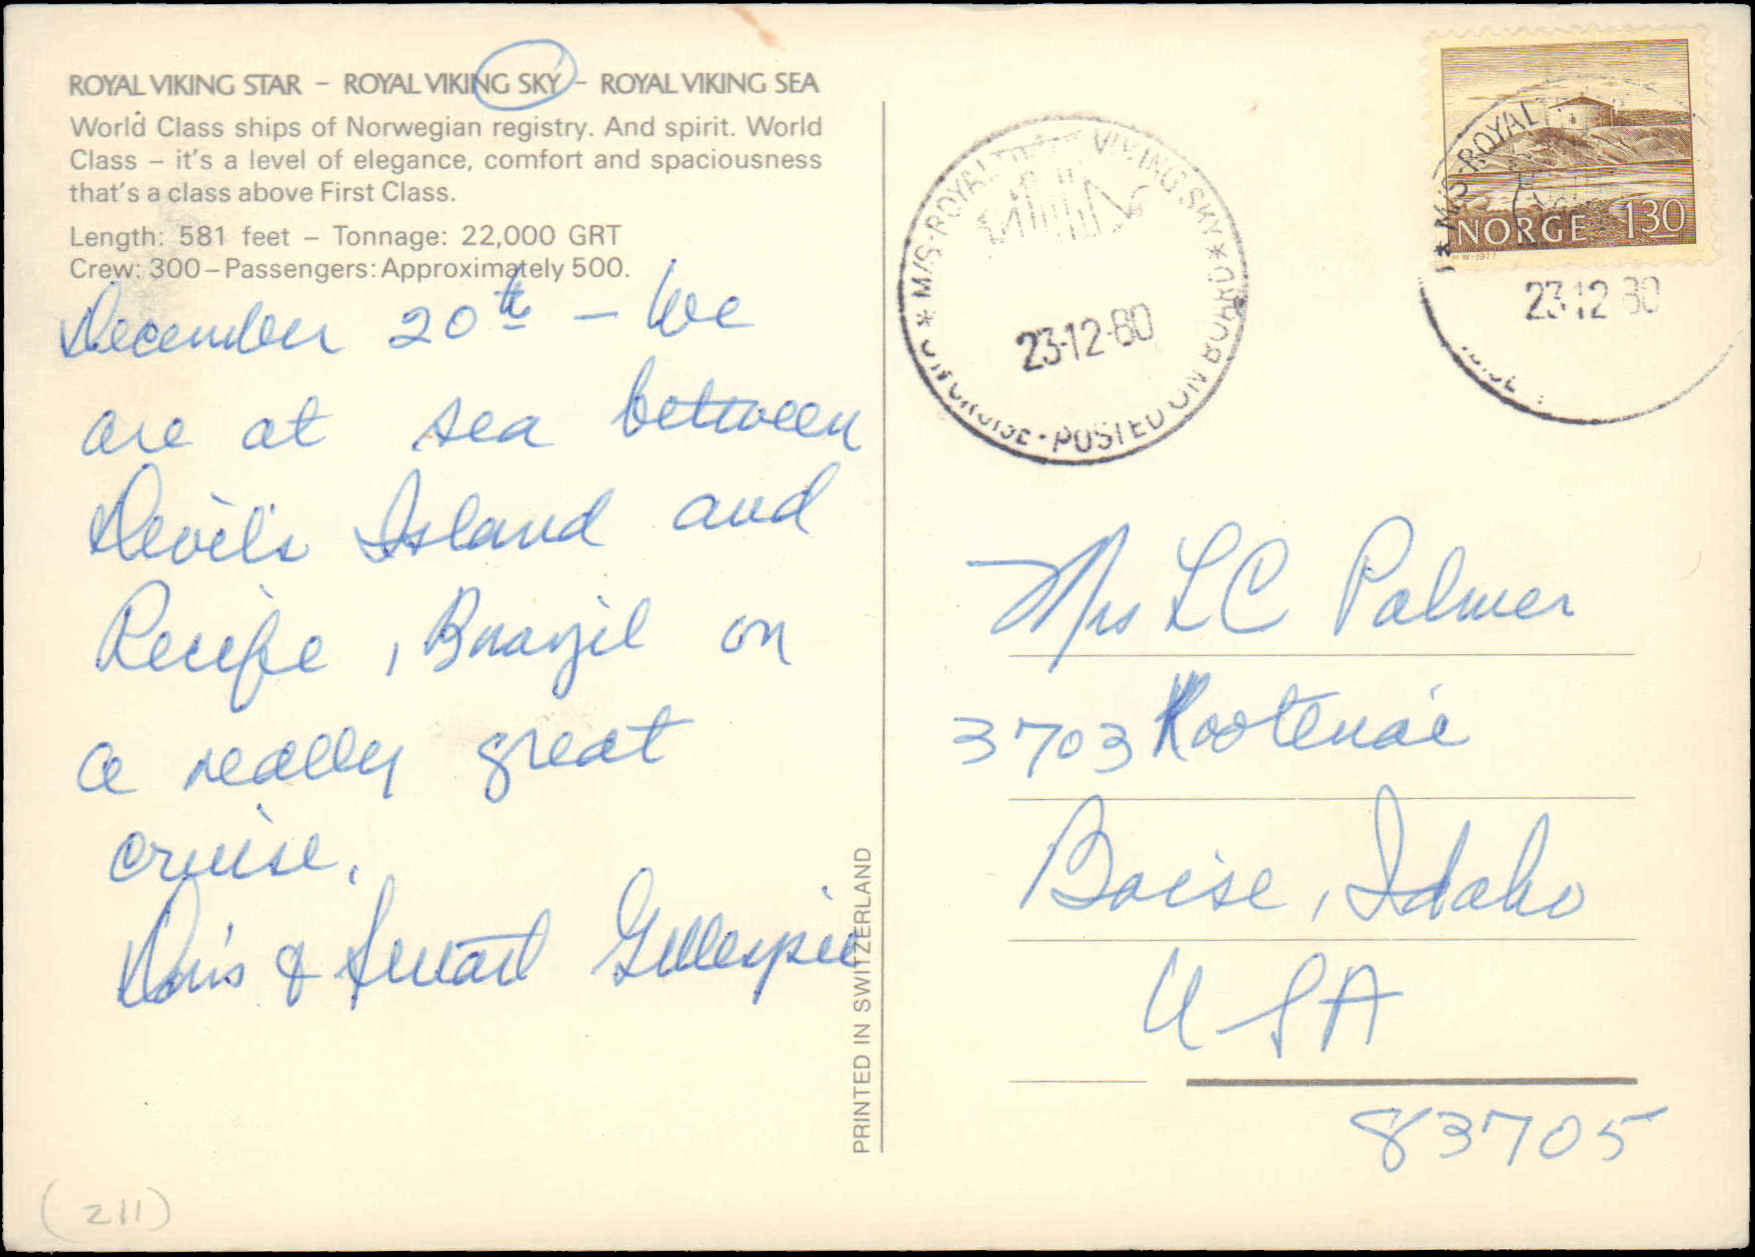 ROYAL VIKING STAR – ROYAL VIKING SKY – ROYAL VIKING SEA
World Class ships of Norwegian registry. And spirit. World
Class – it's a level of elegance, comfort and spaciousness
that's a class above First Class.
Length: 581 feet – Tonnage: 22,000 GRT
Crew: 300 – Passengers: Approximately 500.
December 20th – We
are at sea between
Devil's Island and
Recife, Brazil on
a really great
cruise.
Doris & Stuart Gillespie
PRINTED IN SWITZERLAND
(211)
* M/S·ROYAL VIKING SKY * ON CRUISE · POSTED ON BOARD
23-12-80
NORGE 130
* M/S·ROYAL
23 12 80
Mrs L C Palmer
3703 Kootenai
Boise, Idaho
USA
83705